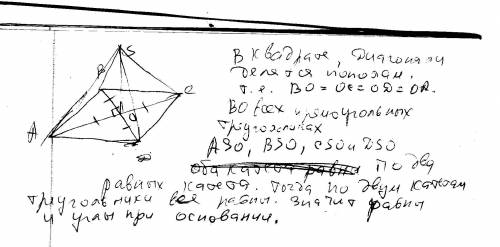 S
В
С
А
О
В квадрате, диагонали
делятся пополам.
т.е. BO = OC = OD = OA.
Во всех прямоугольных
треугольниках
ASO, BSO, CSO и DSO
оба катета равны по два
равных катета. Тогда по двум катетам
треугольники все равны. Значит равны
и углы при основании.